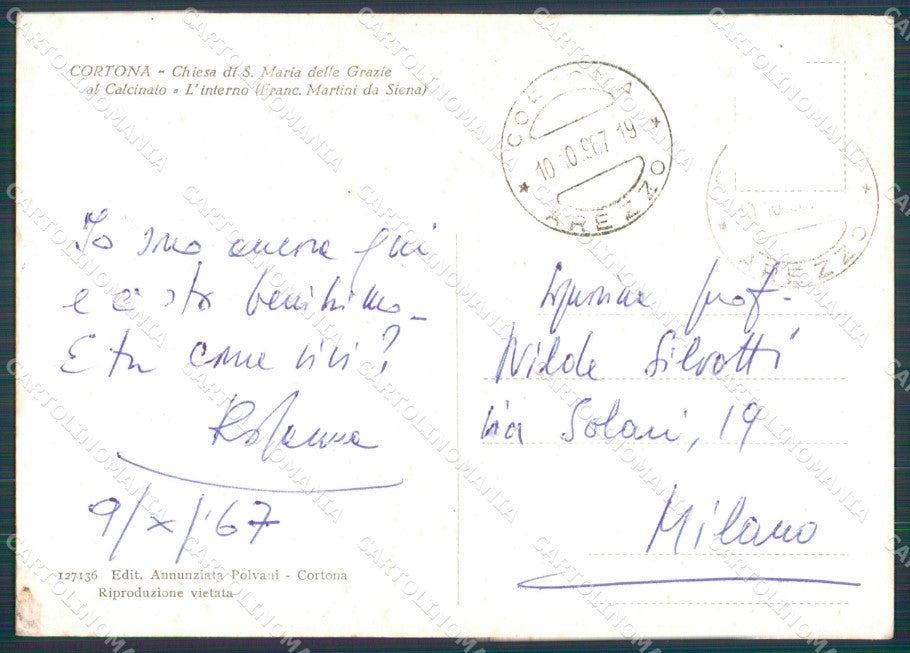 CORTONA - Chiesa di S. Maria delle Grazie
al Calcinaio - L'interno (Franc. Martini da Siena)
CORTONA
10 .0.967 19
* AREZZO *
* AREZZO *
Io sono ancora qui
e ci sto benissimo_
E tu come vivi?
9/X/'67
127136 Edit. Annunziata Polvani - Cortona
Riproduzione vietata
prof.
Nilde Silvotti
Via Solari, 19
Milano
CARTOLINOMANIA